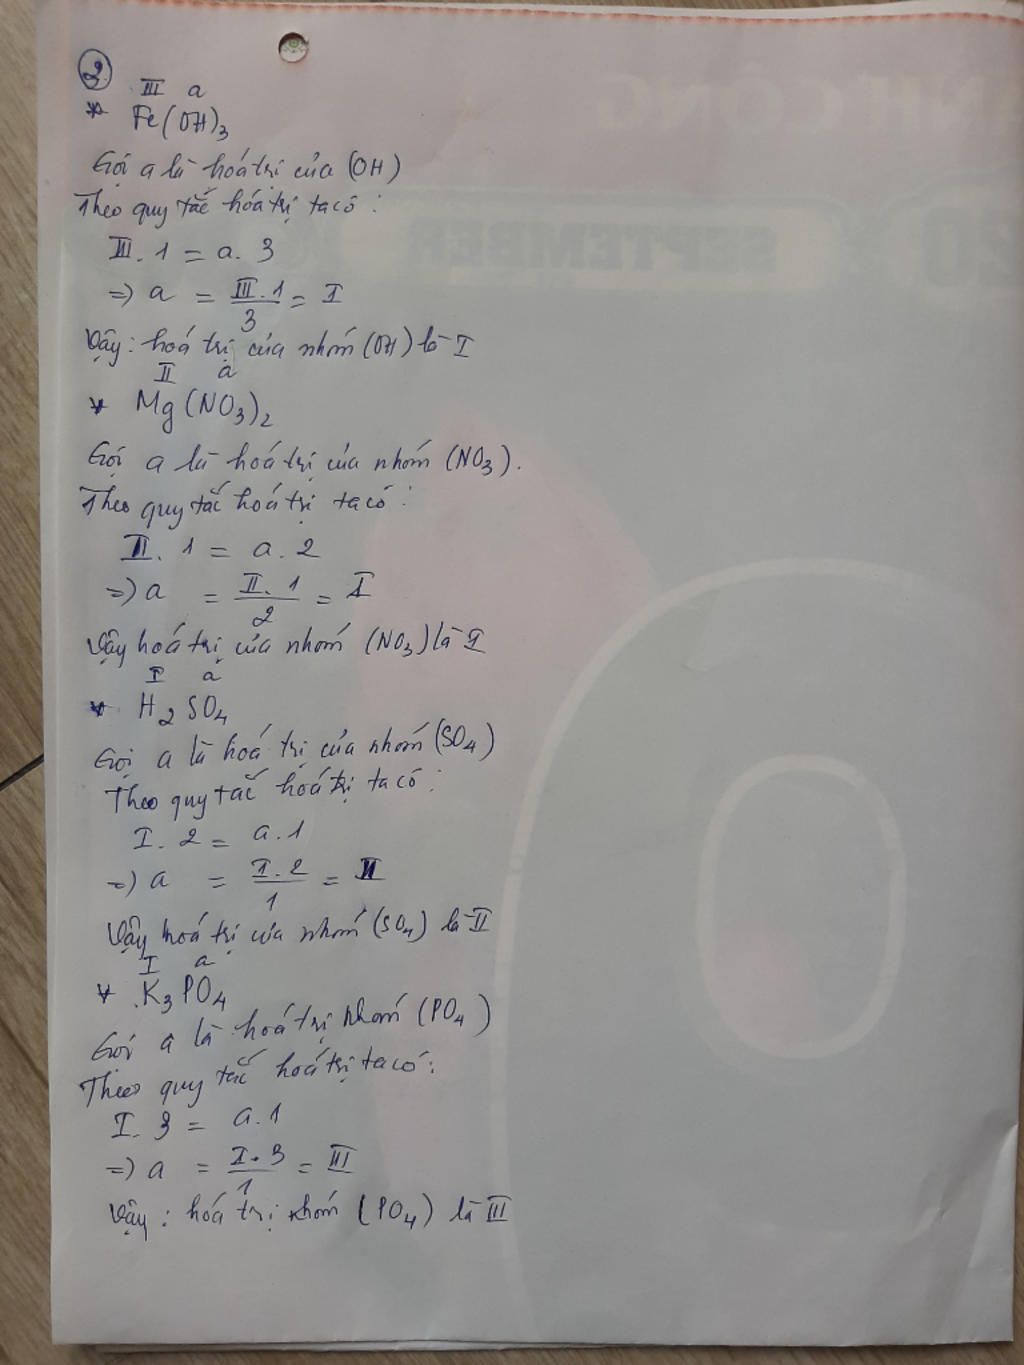 2.
III a
* Fe(OH)3
Gọi a là hoá trị của (OH)
Theo quy tắc hóa trị ta có :
III. 1 = a. 3
=> a = III.1/3 = I
Vậy: hoá trị của nhóm (OH) là I
II a
* Mg(NO3)2
Gọi a là hoá trị của nhóm (NO3).
Theo quy tắc hoá trị ta có :
II. 1 = a. 2
=> a = II. 1/2 = I
Vậy hoá trị của nhóm (NO3) là I
I a
* H2SO4
Gọi a là hoá trị của nhóm (SO4)
Theo quy tắc hoá trị ta có :
I. 2 = a.1
=> a = I.2/1 = II
Vậy hoá trị của nhóm (SO4) là II
I a
* K3PO4
Gọi a là hoá trị nhóm (PO4)
Theo quy tắc hoá trị ta có:
I. 3 = a.1
=> a = I.3/1 = III
Vậy : hóa trị nhóm (PO4) là III
NH CÔNG
SEPTEMBER
20